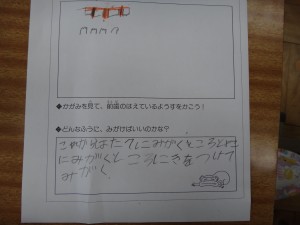 ◆かがみを見て、前歯のはえているようすをかこう!
◆どんなふうに、みがけばいいのかな?
にみがくところとに
にみがくと ころにきをつけて
みがく